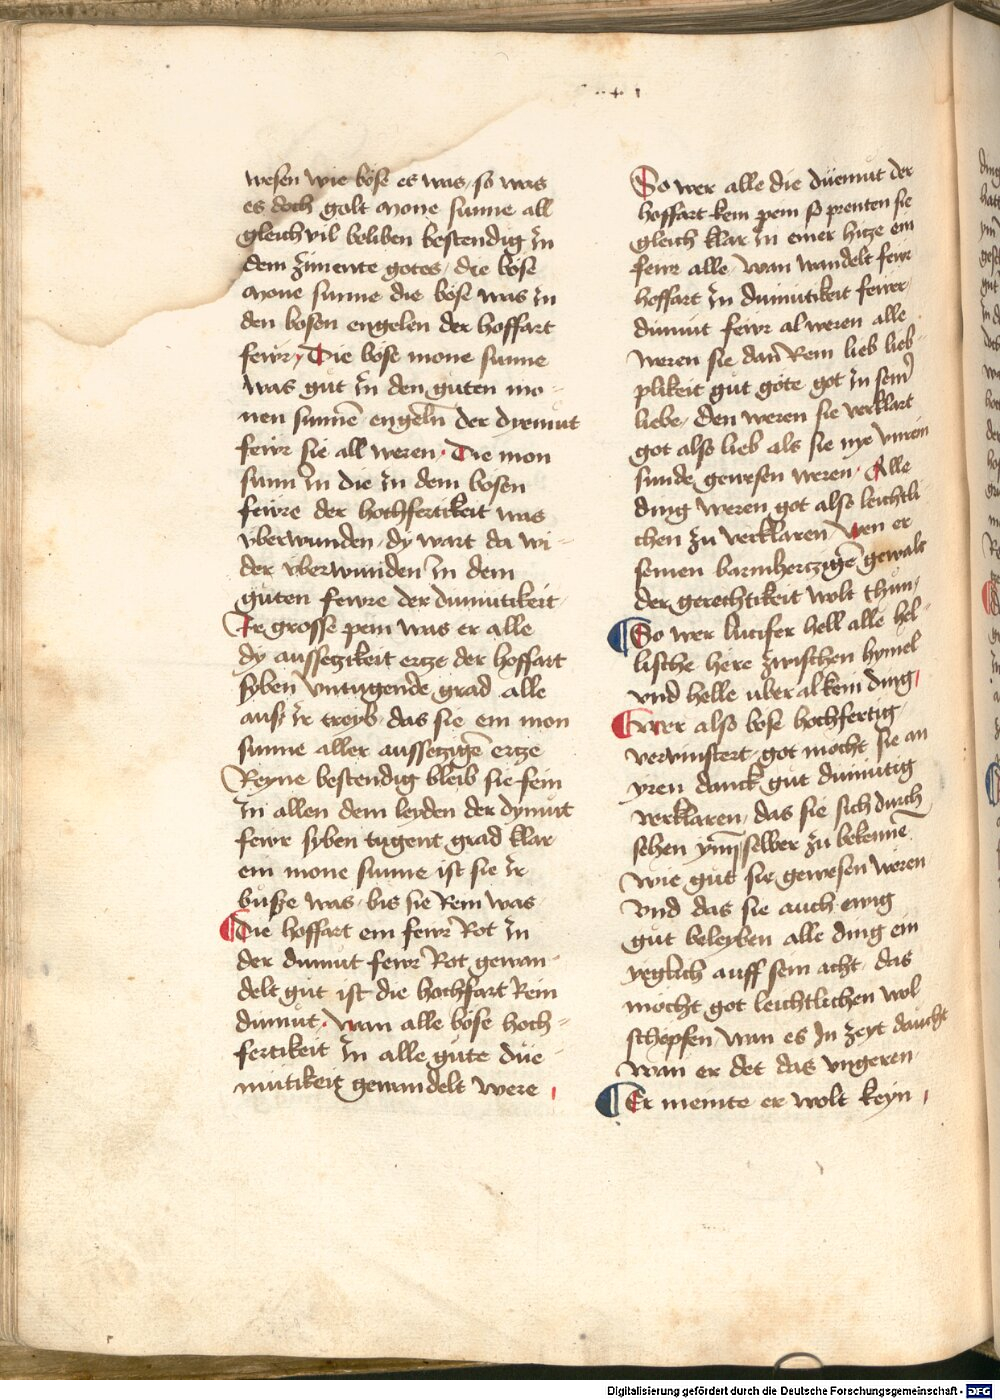 wesen wie böse es was / so was
es doch golt mone sunne all
gleich vil beliben bestendig in
dem zimente gotes / die böse
mone sunne die böse was in
den bosen engelen der hoffart
fewr / Die böse mone sunne
was gůt in den gůten mo-
nen sunnē engelñ der diemut
fewr sie all weren · Die mon
sunn in die in dem bosen
fewre der hochfertikeit was
vberwunden / dy wart da wi-
der vberwunden in dem
gůten fewre der dimutikeit
Ir grosse pein was er alle
dy aussetzikeit ertze der hoffart
syben vntugende grad alle
auß ir treyb / das sie ein mon
sunne aller aussetzigē ertze
Reyne bestendig bleib sie sein
in allen dem leyden der dymůt
fewr syben tugent grad klar
ein mone sunne ist sie ir
bůsße was / bis sie Rein was
Die hoffart ein fewr Rot in
der dimůt fewr Rot gewan-
delt gůt ist die hochfart Rein
dimůt / wan alle böse hoch-
fertikeit in alle gůte die-
mütikeit gewandelt were
So wer alle die düemůt der
hoffart kein pein so prenten sie
gleich klar in einer hitze ein
fewr alle / wan wandelt fewr
hoffart in dumutikeit fewer /
dimut fewr al weren alle
weren sie dañ Rein lieb lieb-
plikeit gůt göte got in seiñ
liebe / den weren sie verklart
got also lieb als sie nye vnrein
sunde gewesen weren · Alle
ding weren got also leichtli-
chen zu verklaren wen er
seinen barmhertzigē gewalt
der gerechtikeit wolt thun /
So wer lucifer hell alle hel-
lische here zwischen hymel
vnd helle uber al kein ding
Ewer also bose hochfertig
vervinstert / got mocht sie an
yren danck gut dimůtig
verklaren / das sie sich durch
sehen selber zu bekennē
wie gůt sie gewesen weren
Vnd das sie auch ewig
gůt beleyben alle ding ein
yeglich auff sein acht / das
mocht got leichtlichen wol
schepfen / wan es in zeyt daucht
wan er det das vngeren
Er meinte er wolt keyn
Digitalisierung gefördert durch die Deutsche Forschungsgemeinschaft - DFG